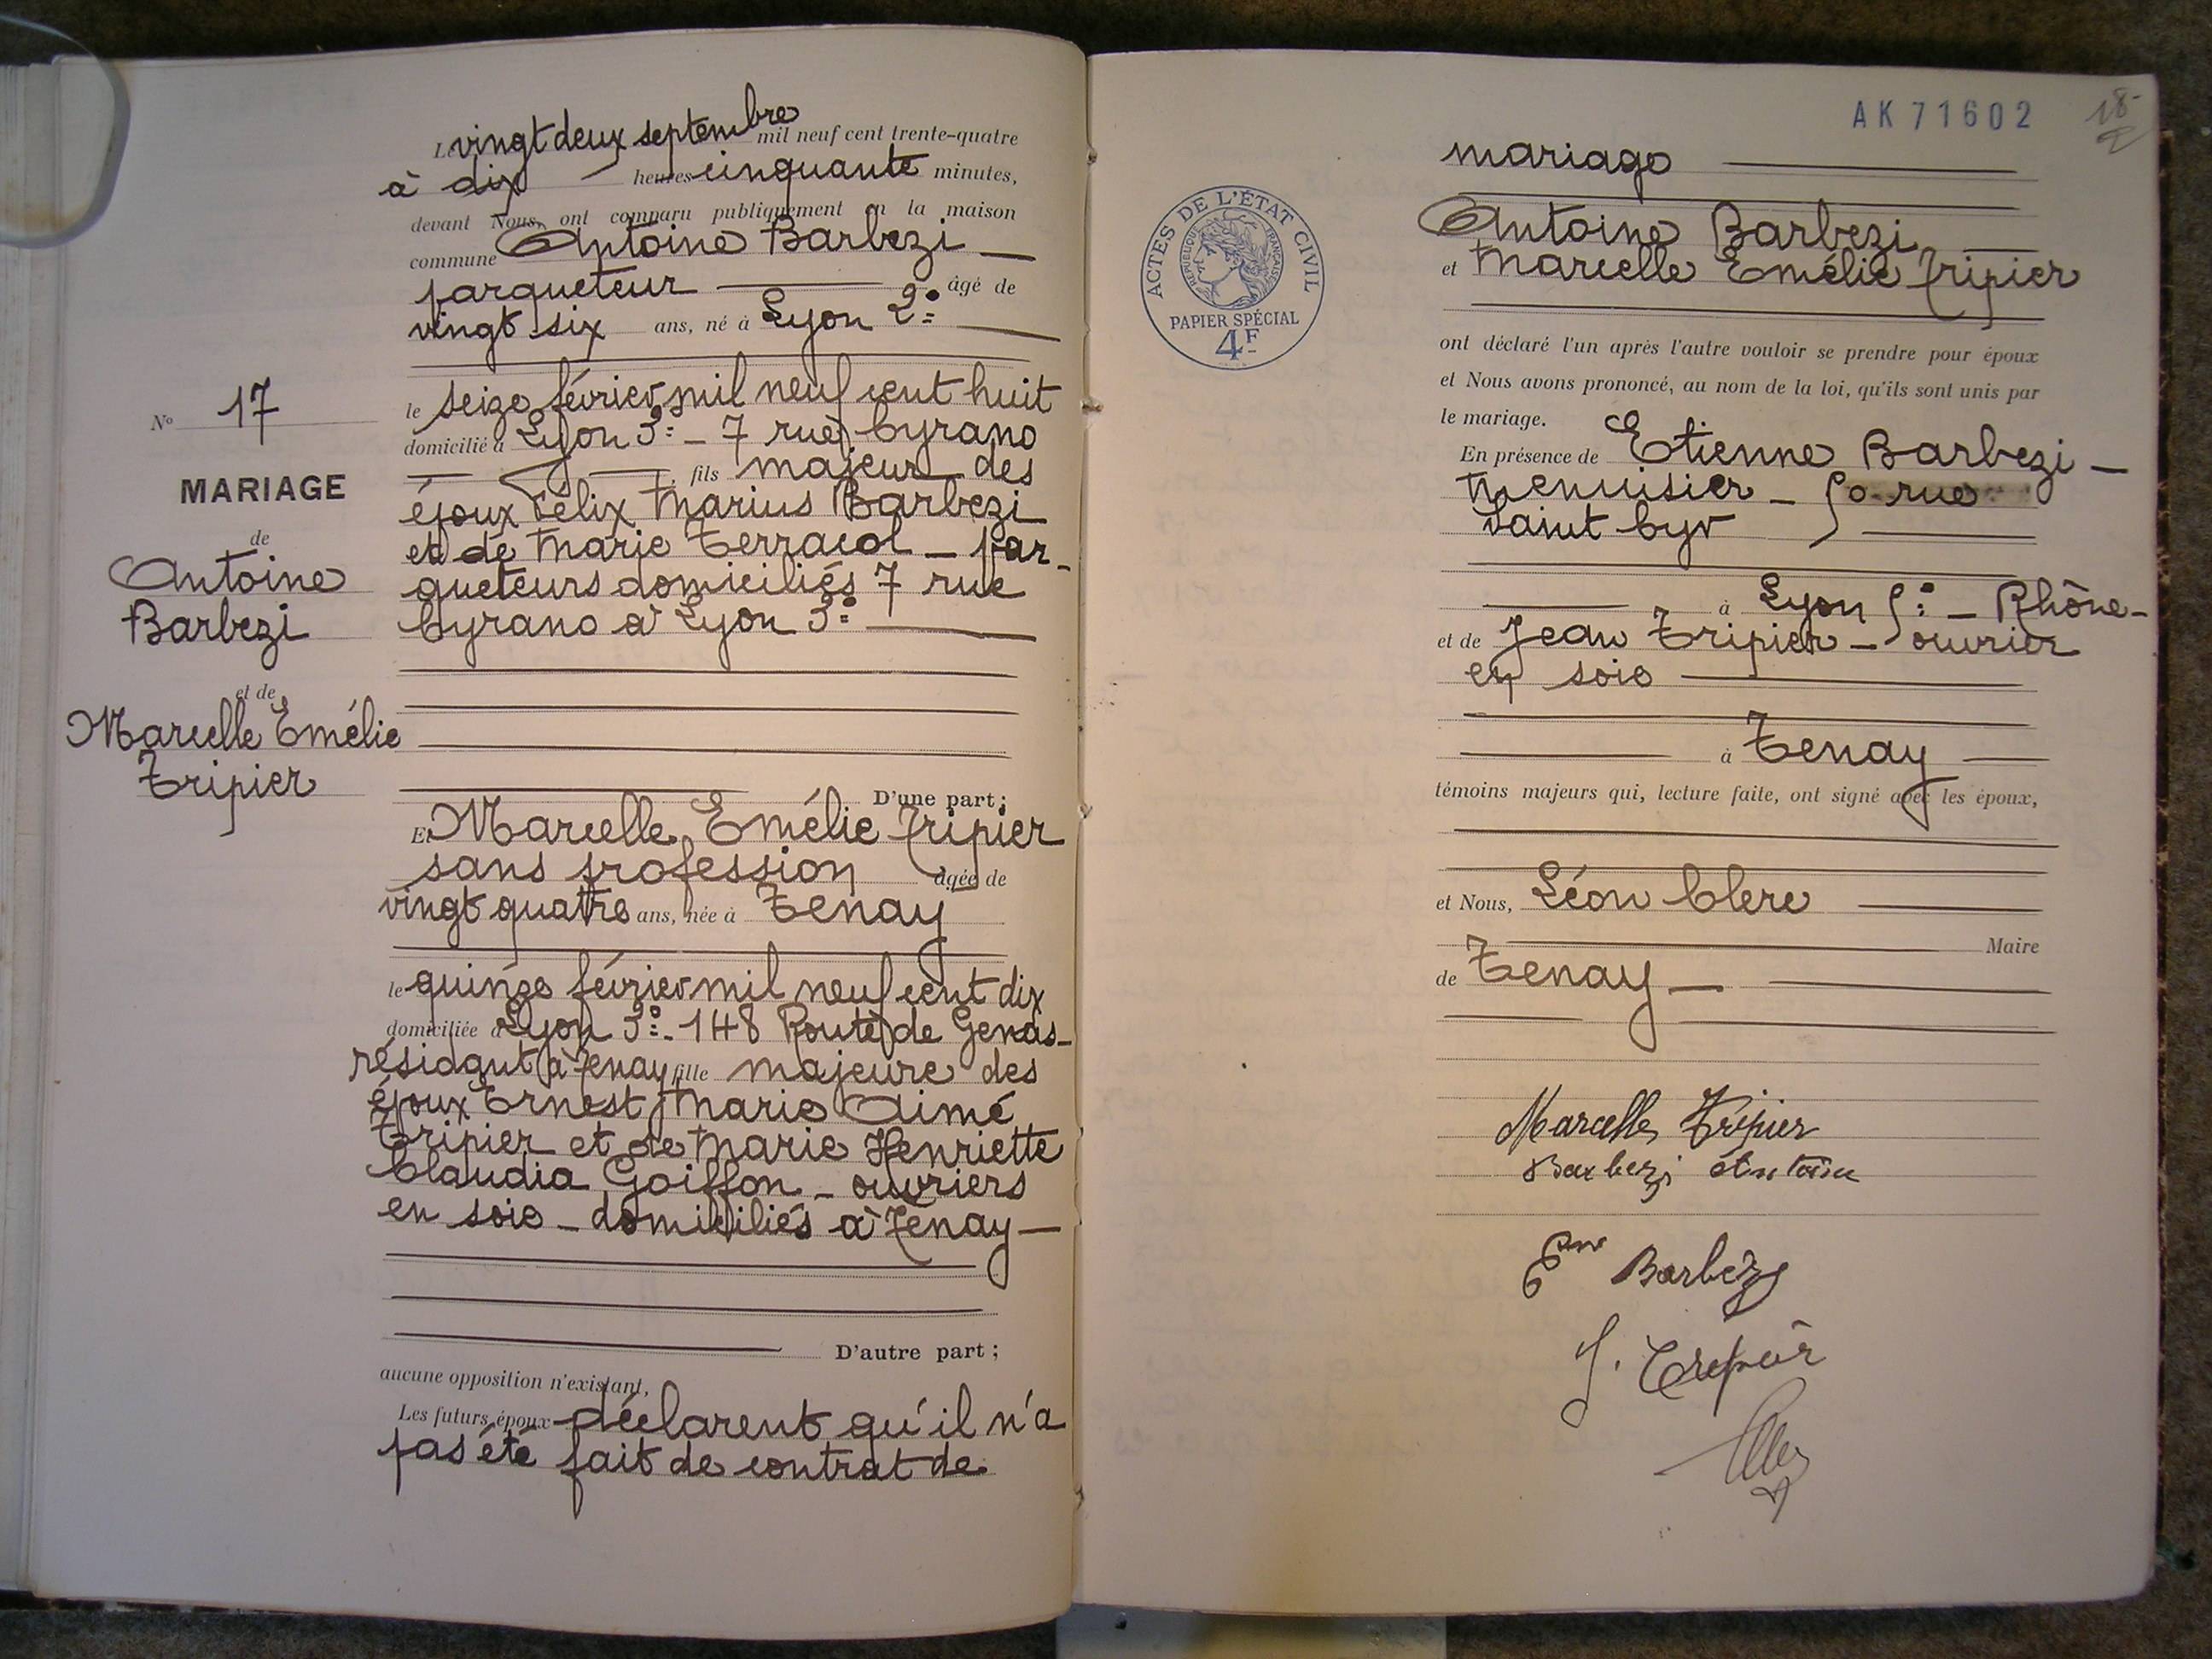 Le vingt deux septembre mil neuf cent trente-quatre
à dix heures cinquante minutes,
devant Nous, ont comparu publiquement en la maison
commune Antoine Barbezi
parqueteur âgé de
vingt six ans, né à Lyon 2º
le seize février mil neuf cent huit
domicilié à Lyon 3º - 7 rue Cyrano
fils majeur des
époux Félix Marius Barbezi
et de Marie Terracol - par-
queteurs domiciliés 7 rue
Cyrano à Lyon 3º
Nº 17
MARIAGE
de
Antoine
Barbezi
et de
Marcelle Emélie
Tripier
D'une part;
Et Marcelle Emélie Tripier
sans profession âgée de
vingt quatre ans, née à Tenay
le quinze février mil neuf cent dix
domiciliée à Lyon 3º - 148 Route de Genas -
résidant à Tenay fille majeure des
époux Ernest Marie Aimé
Tripier et de Marie Henriette
Claudia Goiffon - ouvriers
en soie - domiciliés à Tenay -
D'autre part;
aucune opposition n'existant,
Les futurs époux déclarent qu'il n'a
pas été fait de contrat de
AK 71602
18
mariage
ACTES DE L'ÉTAT CIVIL
RÉPUBLIQUE FRANÇAISE
PAPIER SPÉCIAL
4F
Antoine Barbezi
et Marcelle Emélie Tripier
ont déclaré l'un après l'autre vouloir se prendre pour époux
et Nous avons prononcé, au nom de la loi, qu'ils sont unis par
le mariage.
En présence de Etienne Barbezi -
menuisier - 50 rue
Saint Cyr
à Lyon 5º - Rhône -
et de Jean Tripier - ouvrier
en soie
à Tenay
témoins majeurs qui, lecture faite, ont signé avec les époux,
et Nous, Léon Clerc
Maire
de Tenay -
Marcelle Tripier
Barbezi Antoine
Enne Barbezi
J. Tripier